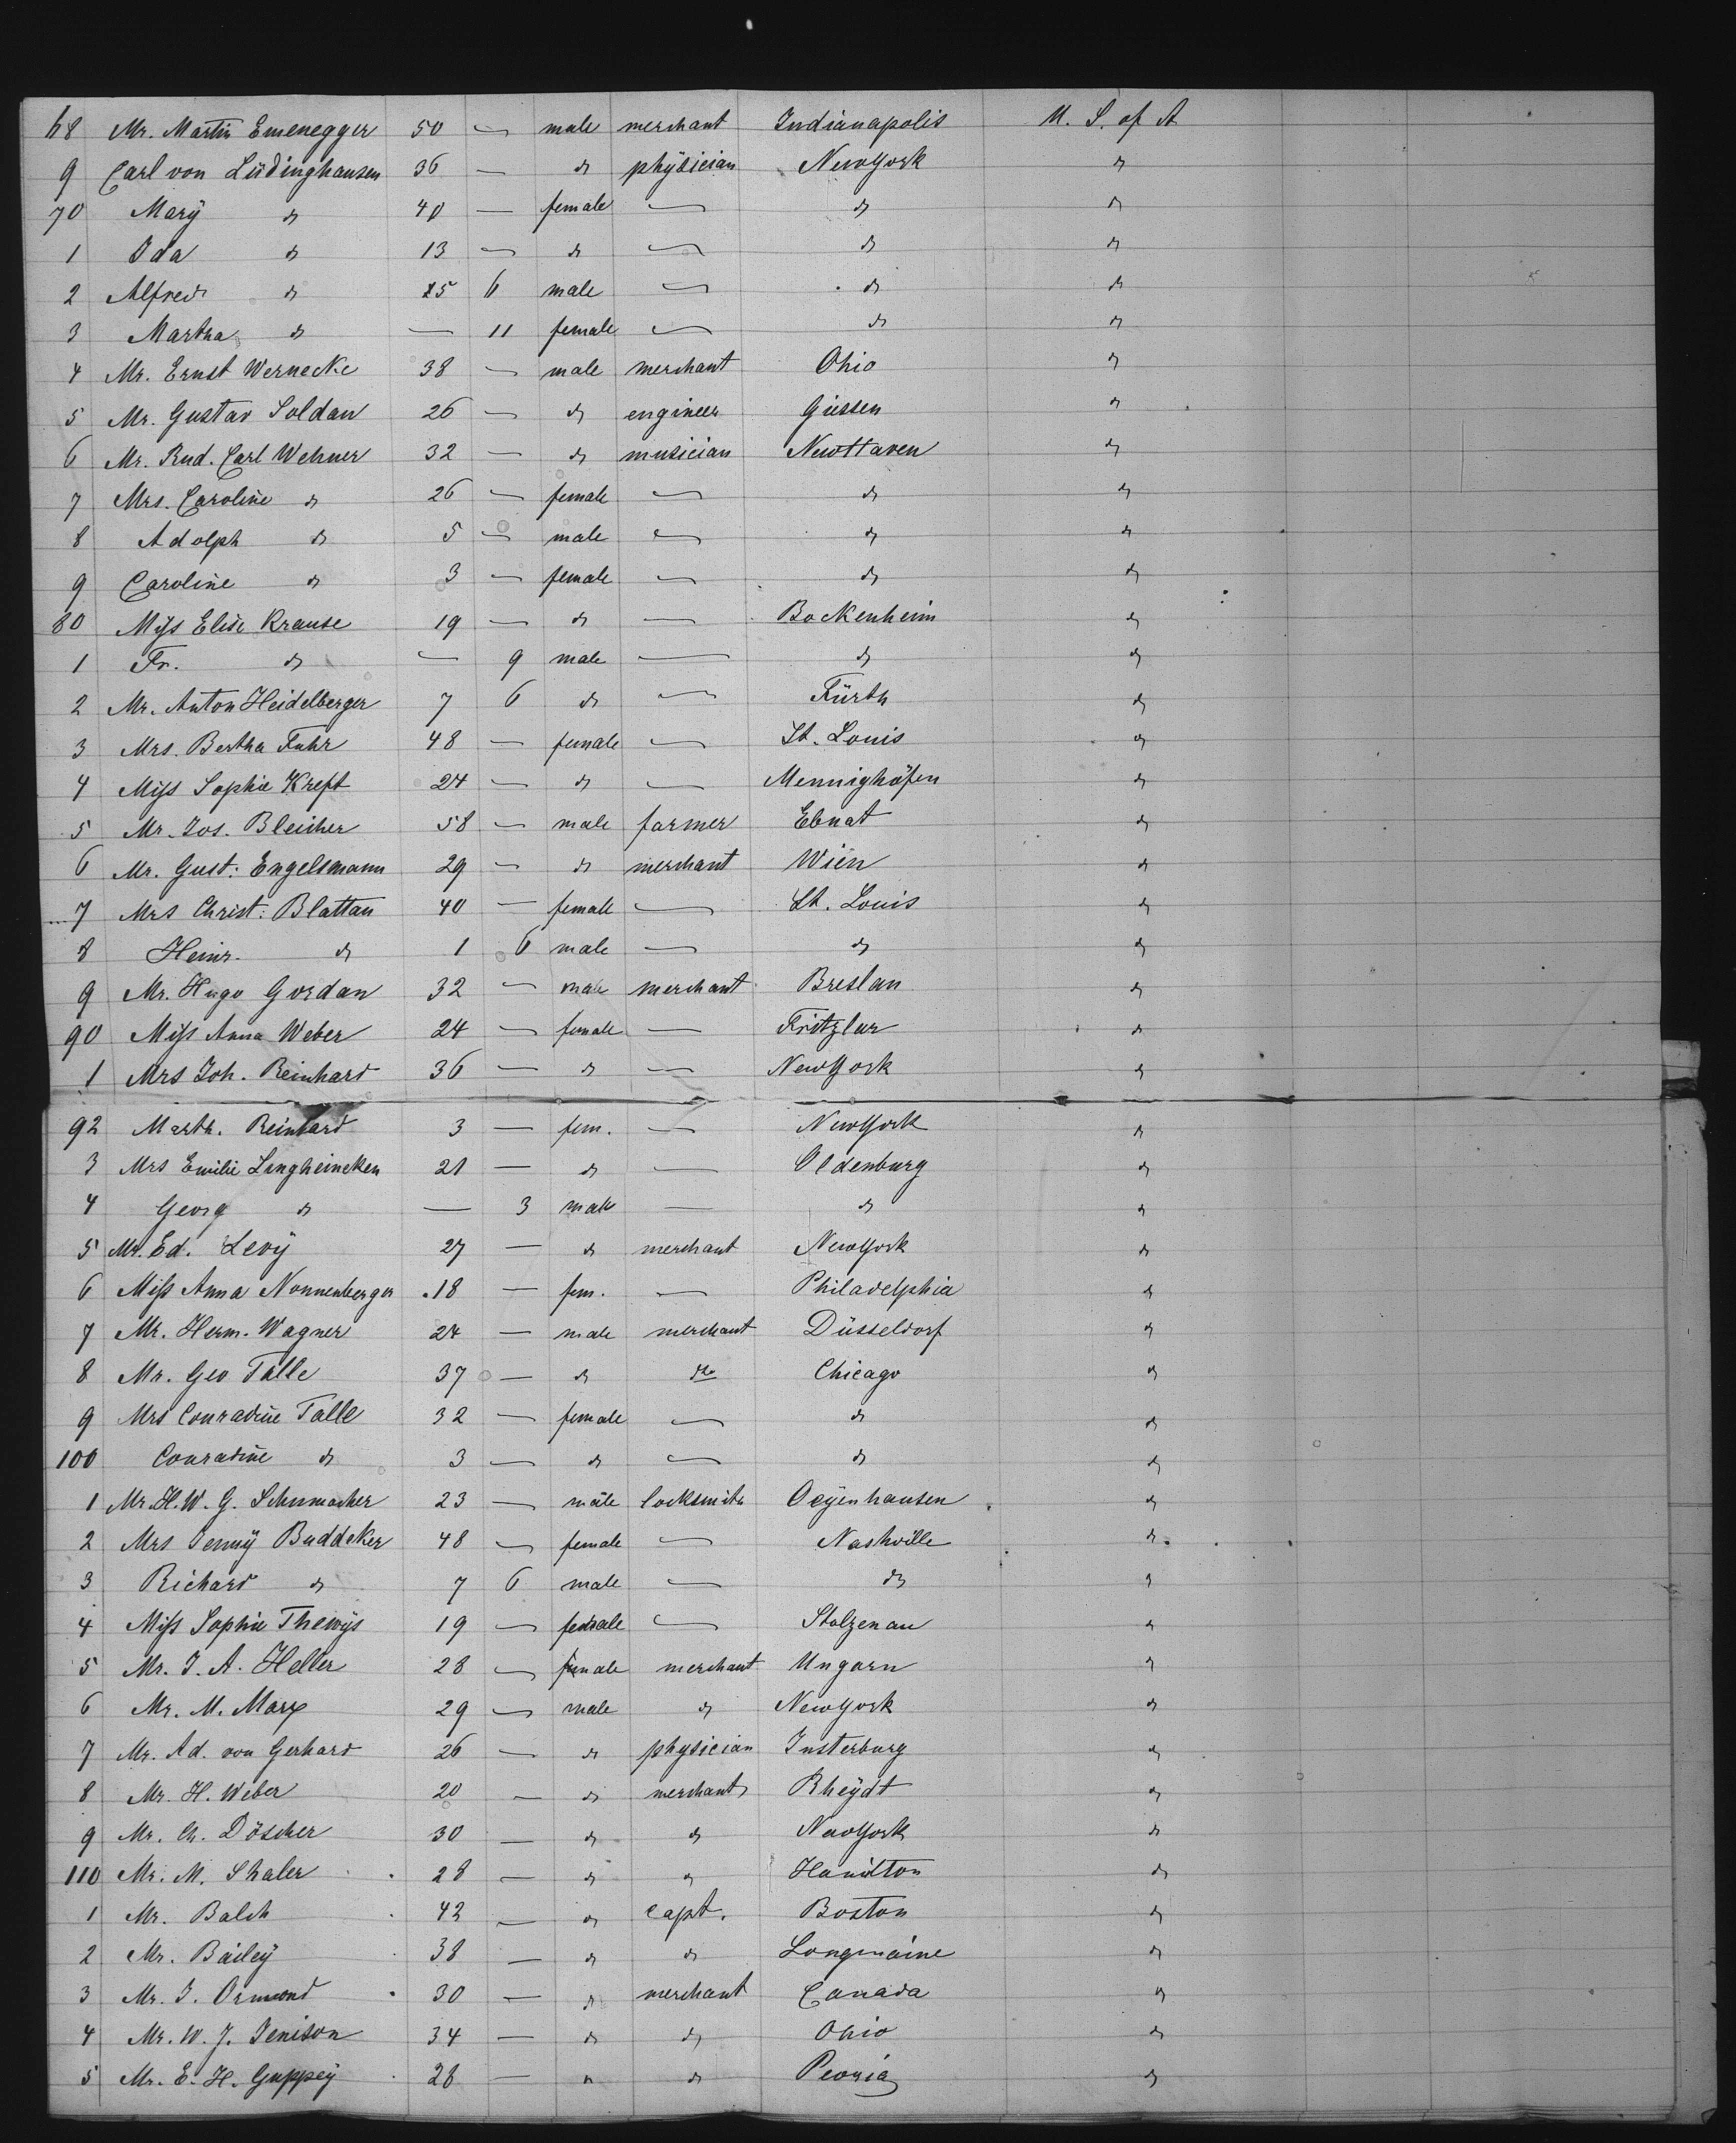 68 Mr. Martin Emenegger 50 — male merchant Indianapolis U. S. of A
9 Carl von Lüdinghausen 36 — do physician New York do
70 Mary do 40 — female — do do
1 Ida do 13 — do — do do
2 Alfred do 5 6 male — do do
3 Martha do — 11 female — do do
4 Mr. Ernst Wernecke 38 — male merchant Ohio do
5 Mr. Gustav Soldan 26 — do engineer Giessen do
6 Mr. Rud. Carl Wehner 32 — do musician New Haven do
7 Mrs. Caroline do 26 — female — do do
8 Adolph do 5 — male — do do
9 Caroline do 3 — female — do do
80 Miss Elise Krause 19 — do — Bockenheim do
1 Fr. do — 9 male — do do
2 Mr. Anton Heidelberger 7 6 do — Fürth do
3 Mrs. Bertha Fuhr 48 — female — St. Louis do
4 Miss Sophie Kreft 24 — do — Mennighöfen do
5 Mr. Jos. Bleicher 58 — male farmer Ebnat do
6 Mr. Gust: Engelsmann 29 — do merchant Wien do
7 Mrs Christ: Blattau 40 — female — St. Louis do
8 Heinr. do 1 6 male — do do
9 Mr. Hugo Gordan 32 — male merchant Breslau do
90 Miss Anna Weber 24 — female — Fritzlar do
1 Mrs Joh. Reinhard 36 — do — New York do
92 Marth. Reinhard 3 — fem. — New York do
3 Mrs Emilie Lingheineken 21 — do — Oldenburg do
4 Georg do — 3 male — do do
5 Mr. Ed. Levy 27 — do merchant New York do
6 Miss Anna Nonnenberger 18 — fem. — Philadelphia do
7 Mr. Herm. Wagner 24 — male merchant Düsseldorf do
8 Mr. Geo Talle 37 — do do Chicago do
9 Mrs Conradine Talle 32 — female — do do
100 Conradine do 3 — do — do do
1 Mr. H. W. G. Schumacher 23 — male locksmith Oeyenhausen do
2 Mrs Jenny Buddeker 48 — female — Nashville do
3 Richard do 7 6 male — do do
4 Miss Sophie Thewys 19 — female — Stolzenau do
5 Mr. J. A. Heller 28 — male merchant Ungarn do
6 Mr. M. Marx 29 — male do New York do
7 Mr. Ad. von Gerhard 26 — do physician Insterburg do
8 Mr. H. Weber 20 — do merchant Rheydt do
9 Mr. Ch. Döscher 30 — do do New York do
110 Mr. M. Shaler 28 — do do Hamilton do
1 Mr. Balch 42 — do capt. Boston do
2 Mr. Bailey 38 — do do Longmaine do
3 Mr. J. Ormond 30 — do merchant Canada do
4 Mr. W. J. Jenison 34 — do do Ohio do
5 Mr. E. H. Guppey 26 — do do Peoria do